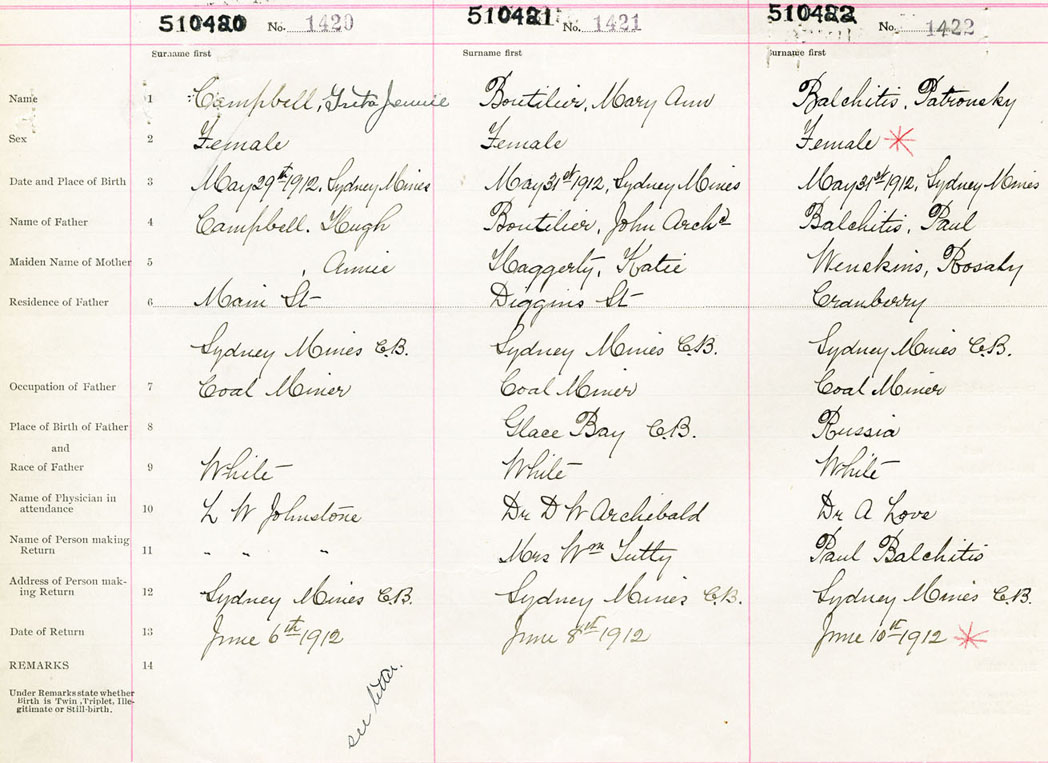 510420 No. 1420 510421 No. 1421 510422 No. 1422
Surname first Surname first Surname first
Name 1 Campbell, Greta Jennie Boutilier, Mary Ann Balchitis, Patronsky
Sex 2 Female Female Female
Date and Place of Birth 3 May 29th 1912, Sydney Mines May 31st 1912, Sydney Mines May 31st 1912, Sydney Mines
Name of Father 4 Campbell. Hugh Boutilier, John Archd Balchitis, Paul
Maiden Name of Mother 5 , Annie Haggerty, Katie Wenskins, Rosaly
Residence of Father 6 Main St Diggins St Cranberry
Sydney Mines C.B. Sydney Mines C.B. Sydney Mines C.B.
Occupation of Father 7 Coal Miner Coal Miner Coal Miner
Place of Birth of Father 8 Glace Bay C.B. Russia
and
Race of Father 9 White White White
Name of Physician in
attendance 10 L W Johnstone Dr D W Archibald Dr A Love
Name of Person making
Return 11 " " " Mrs Wm Tutty Paul Balchitis
Address of Person mak-
ing Return 12 Sydney Mines C.B. Sydney Mines C.B. Sydney Mines C.B.
Date of Return 13 June 6th 1912 June 8th 1912 June 10th 1912
REMARKS 14
Under Remarks state whether
Birth is Twin, Triplet, Ille-
gitimate or Still-birth.
see letter.